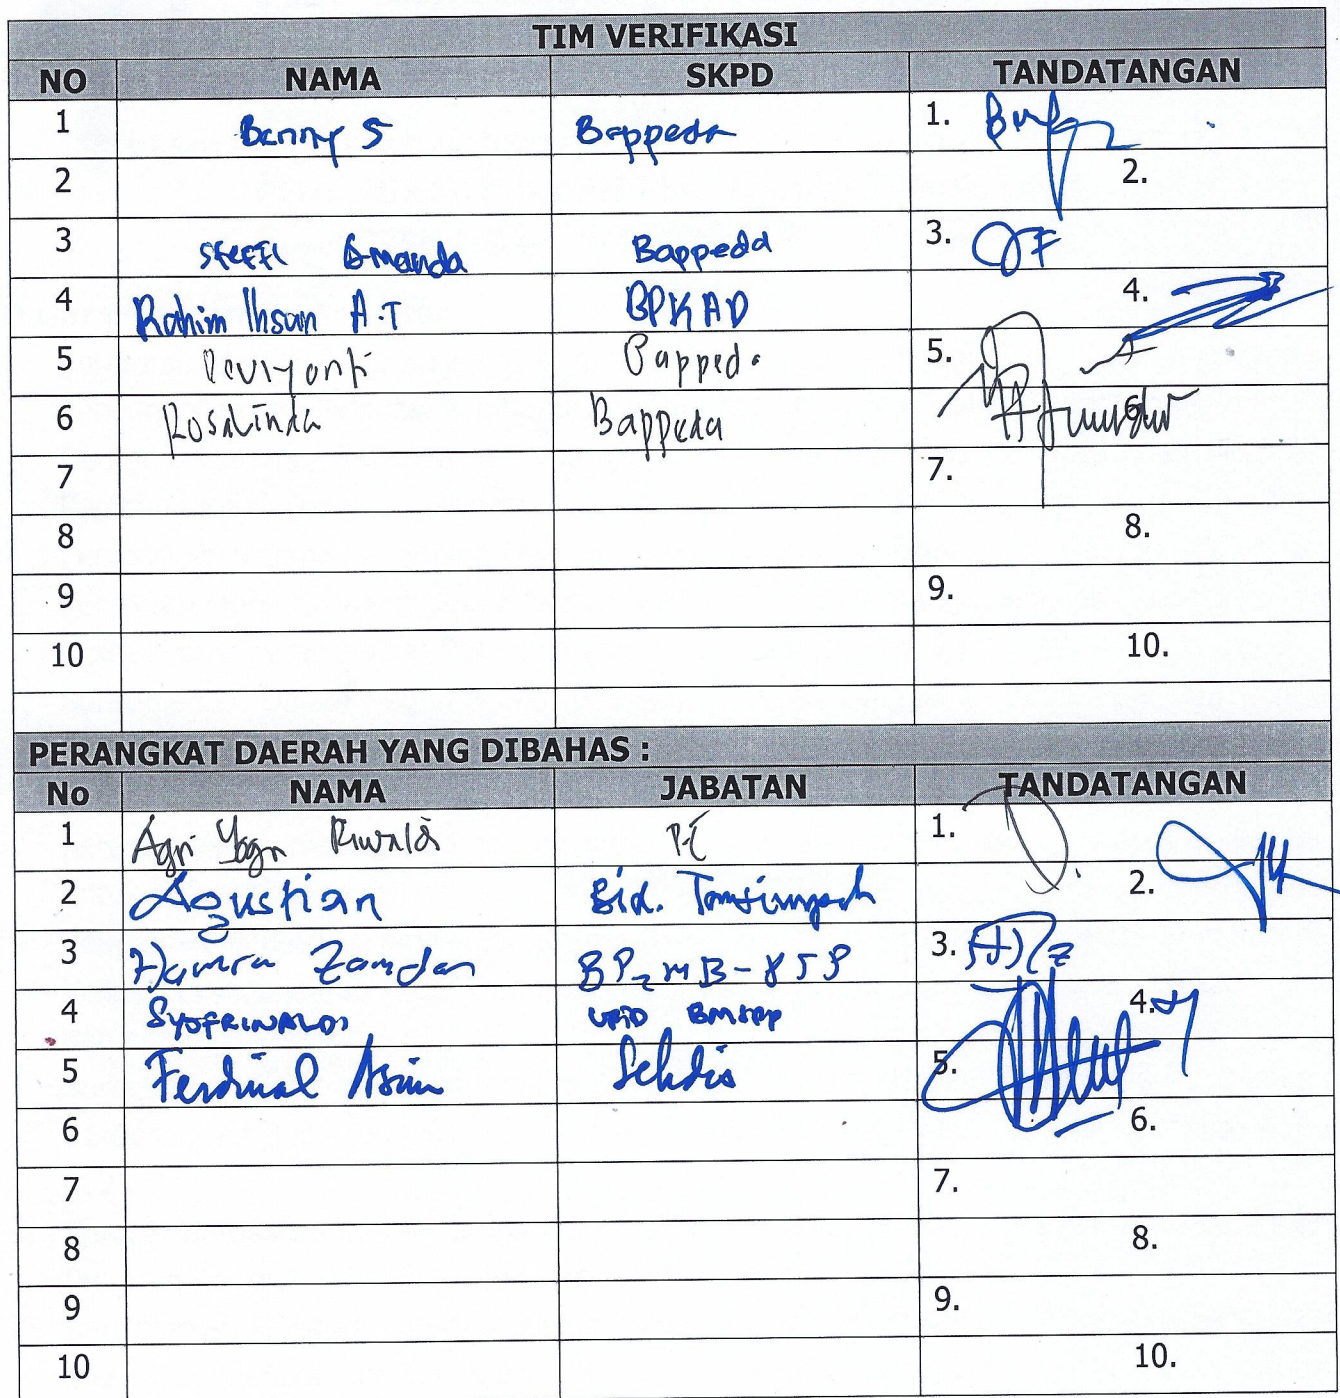 TIM VERIFIKASI
NO NAMA SKPD TANDATANGAN
1 Benny S Bappeda 1.
2 2.
3 Steffi Amanda Bappeda 3.
4 Rahim Ihsan A.T BPKAD 4.
5 Deviyanti Bappeda 5.
6 Rosalinda Bappeda 6.
7 7.
8 8.
9 9.
10 10.
PERANGKAT DAERAH YANG DIBAHAS :
No NAMA JABATAN TANDATANGAN
1 Agri Yoga 1.
2 Agustian Bid. 2.
3 Hamra Zamdan 3.
4 SYOFRINALDI 4.
5 Ferdinal Asmin Sekdis 5.
6 6.
7 7.
8 8.
9 9.
10 10.